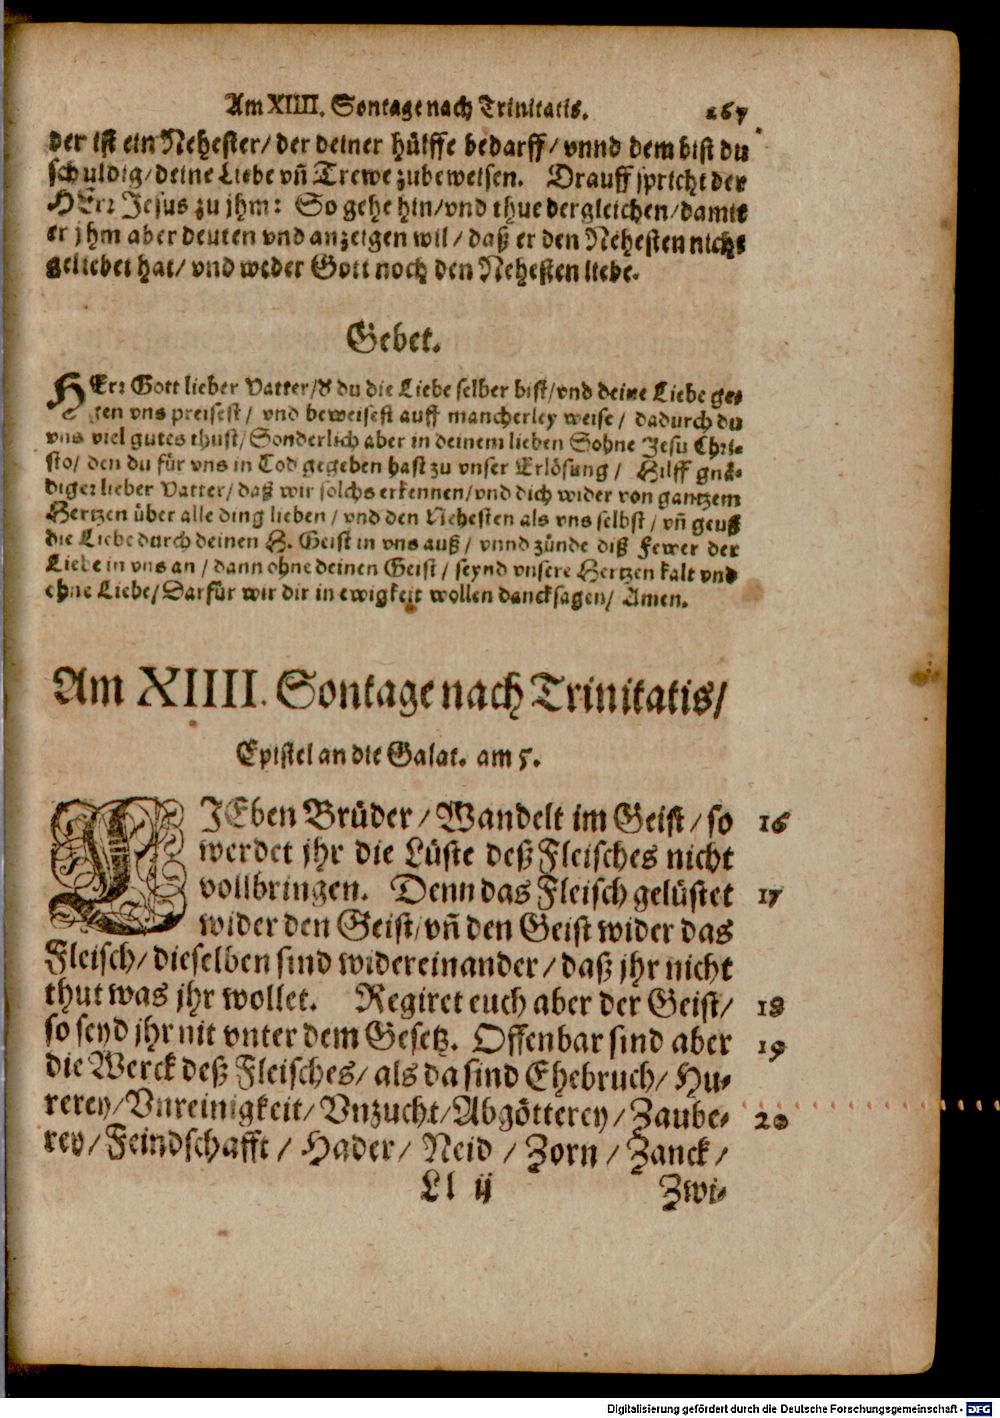 Am XIIII. Sontage nach Trinitatis. 267
der ist ein Nehester/ der deiner hülffe bedarff/ vnnd dem bist du
schuldig/ deine Liebe vn̄ Trewe zubeweisen. Drauff spricht der
HErr Jesus zu jhm: So gehe hin/ vnd thue dergleichen/ damit
er jhm aber deuten vnd anzeigen wil/ daß er den Nehesten nicht
geliebet hat/ vnd weder Gott noch den Nehesten liebe.
Gebet.
HErr Gott lieber Vatter/ d' du die Liebe selber bist/ vnd deine Liebe ge-
gen vns preisest/ vnd beweisest auff mancherley weise/ dadurch du
vns viel gutes thust/ Sonderlich aber in deinem lieben Sohne Jesu Chri-
sto/ den du für vns in Tod gegeben hast zu vnser Erlösung/ Hilff gnä-
diger lieber Vatter/ daß wir solchs erkennen/ vnd dich wider von gantzem
Hertzen über alle ding lieben/ vnd den Nehesten als vns selbst/ vn̄ geuß
die Liebe durch deinen H. Geist in vns auß/ vnnd zünde diß Fewer der
Liebe in vns an/ dann ohne deinen Geist/ seynd vnsere Hertzen kalt vnd
ohne Liebe/ Darfür wir dir in ewigkeit wollen dancksagen/ Amen.
Am XIIII. Sontage nach Trinitatis/
Epistel an die Galat. am 5.
LIEben Brüder/ Wandelt im Geist/ so 16
werdet jhr die Lüste deß Fleisches nicht
vollbringen. Denn das Fleisch gelüstet 17
wider den Geist/ vn̄ den Geist wider das
Fleisch/ dieselben sind widereinander/ daß jhr nicht
thut was jhr wollet. Regiret euch aber der Geist/ 18
so seyd jhr nit vnter dem Gesetz. Offenbar sind aber 19
die Werck deß Fleisches/ als da sind Ehebruch/ Hu-
rerey/ Vnreinigkeit/ Vnzucht/ Abgötterey/ Zaube- 20
rey/ Feindschafft/ Hader/ Neid/ Zorn/ Zanck/
Ll ij Zwi-
Digitalisierung gefördert durch die Deutsche Forschungsgemeinschaft - DFG